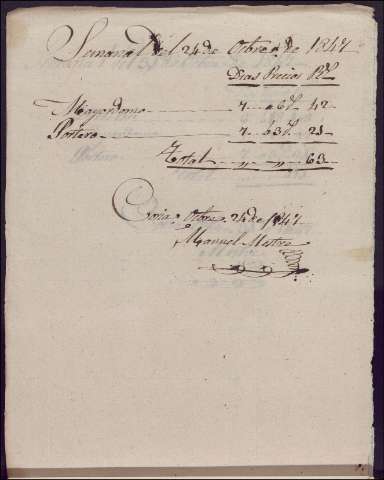 Semana del 24 de Obre. de 1847
Dias Precios Rs.
Mayordomo 7 a 6 rs. 42
Portero 7 a 3 rs. 21
Total " " 63
Obre. 24 de 1847
Manuel Mestre